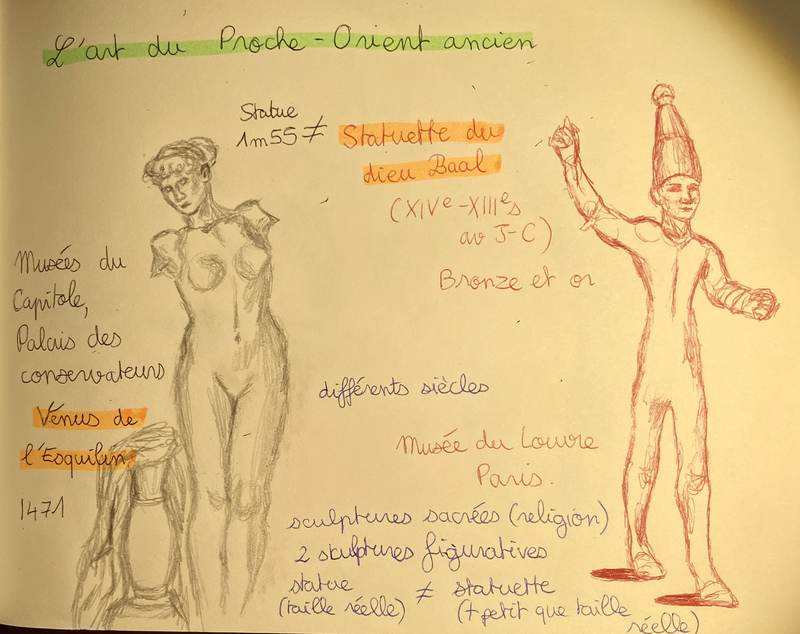 L'art du Proche-Orient ancien
Statue
1m55 ≠ Statuette du
dieu Baal
(XIVe-XIIIes
av J-C)
Bronze et or
Musées du
Capitole,
Palais des
conservateurs
Vénus de
l'Esquilin
1471
différents siècles
Musée du Louvre
Paris.
sculptures sacrées (religion)
2 sculptures figuratives
statue ≠ statuette
(taille réelle) (+ petit que taille
réelle)